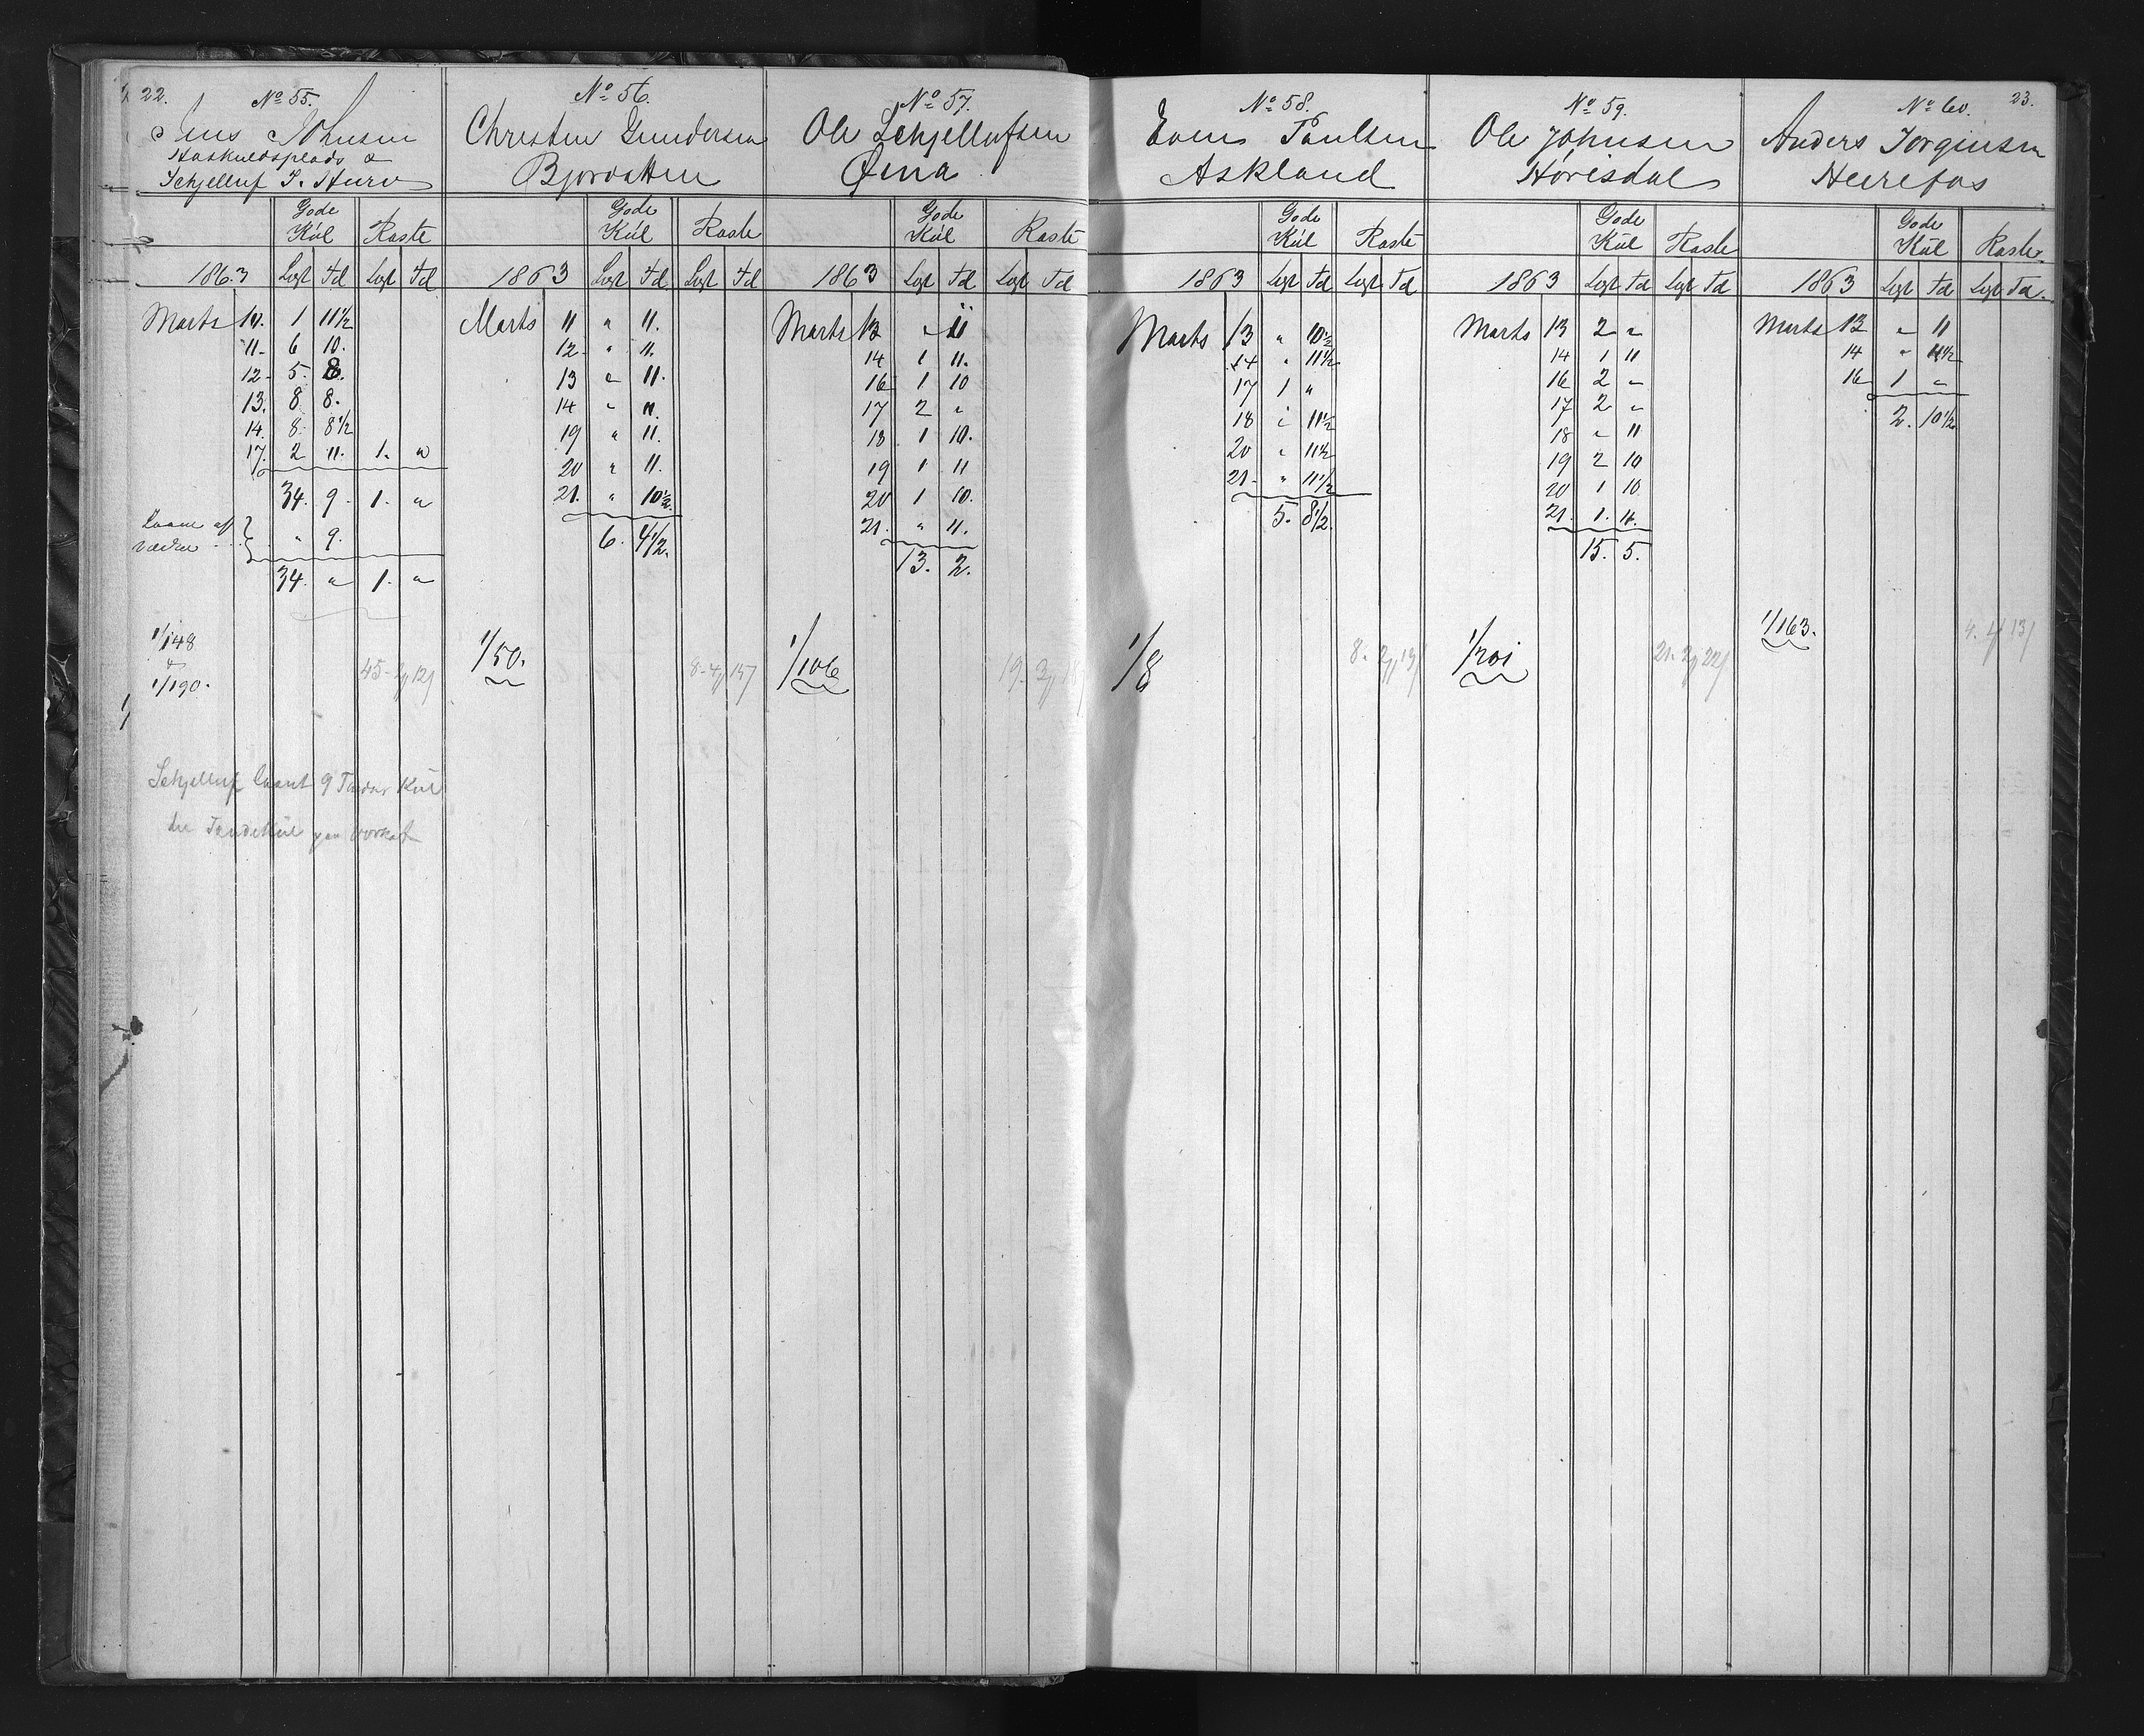 22.
No 55.
Jens Johnsen
Haskuldsplads &
Schjelluf J. Hurv
Gode
Kúl Raste
1863 Lægt Td Lægt Td
Marts 10. 1 11½
11. 6 10.
12. 5. 8.
13. 8 8.
14. 8. 8½
17. 2 11. 1. "
34. 9. 1. "
Laane af
Værket " 9.
34. " 1. "
1/148
&
1/190.
Schjelluf laant 9 Tønder Kúl
No 56.
Christen Gundersen
Bjorvatten
Gode
Kúl Raste
1863 Lægt Td Lægt Td
Marts 11 " 11.
12. " 11.
13 " 11.
14 " 11.
19 " 11.
20 " 11.
21. " 10½
6. 4½.
1/50.
No 57.
Ole Schjellufsen
Øina
Gode
Kúl Raste
1863 Lægt Td Lægt Td
Marts 13 " 11
14 1 11.
16 1 10
17 2 "
18 1 10.
19 1 11
20 1 10.
21. " 11.
13. 2.
1/106
No 58.
Even Paulsen
Askland
Gode
Kúl Raste
1863 Lægt Td Lægt Td
Marts 13 " 10½
14 " 11½
17 1 "
18 " 11½
20 " 11½
21. " 11½
5. 8½.
1/8
No 59.
Ole Johnsen
Hovisdal
Gode
Kúl Raste
1863 Lægt Td Lægt Td
Marts 13 2 "
14 1 11
16 2 "
17 2 "
18 " 11
19 2 10
20 1 10
21. 1. 11.
15. 5.
1/201
No 60. 23.
Anders Jorginsen
Heirefos
Gode
Kúl Raste
1863 Lægt Td Lægt Td.
Marts 13 " 11
14 " 11½
16 1 "
2. 10½
1/163.